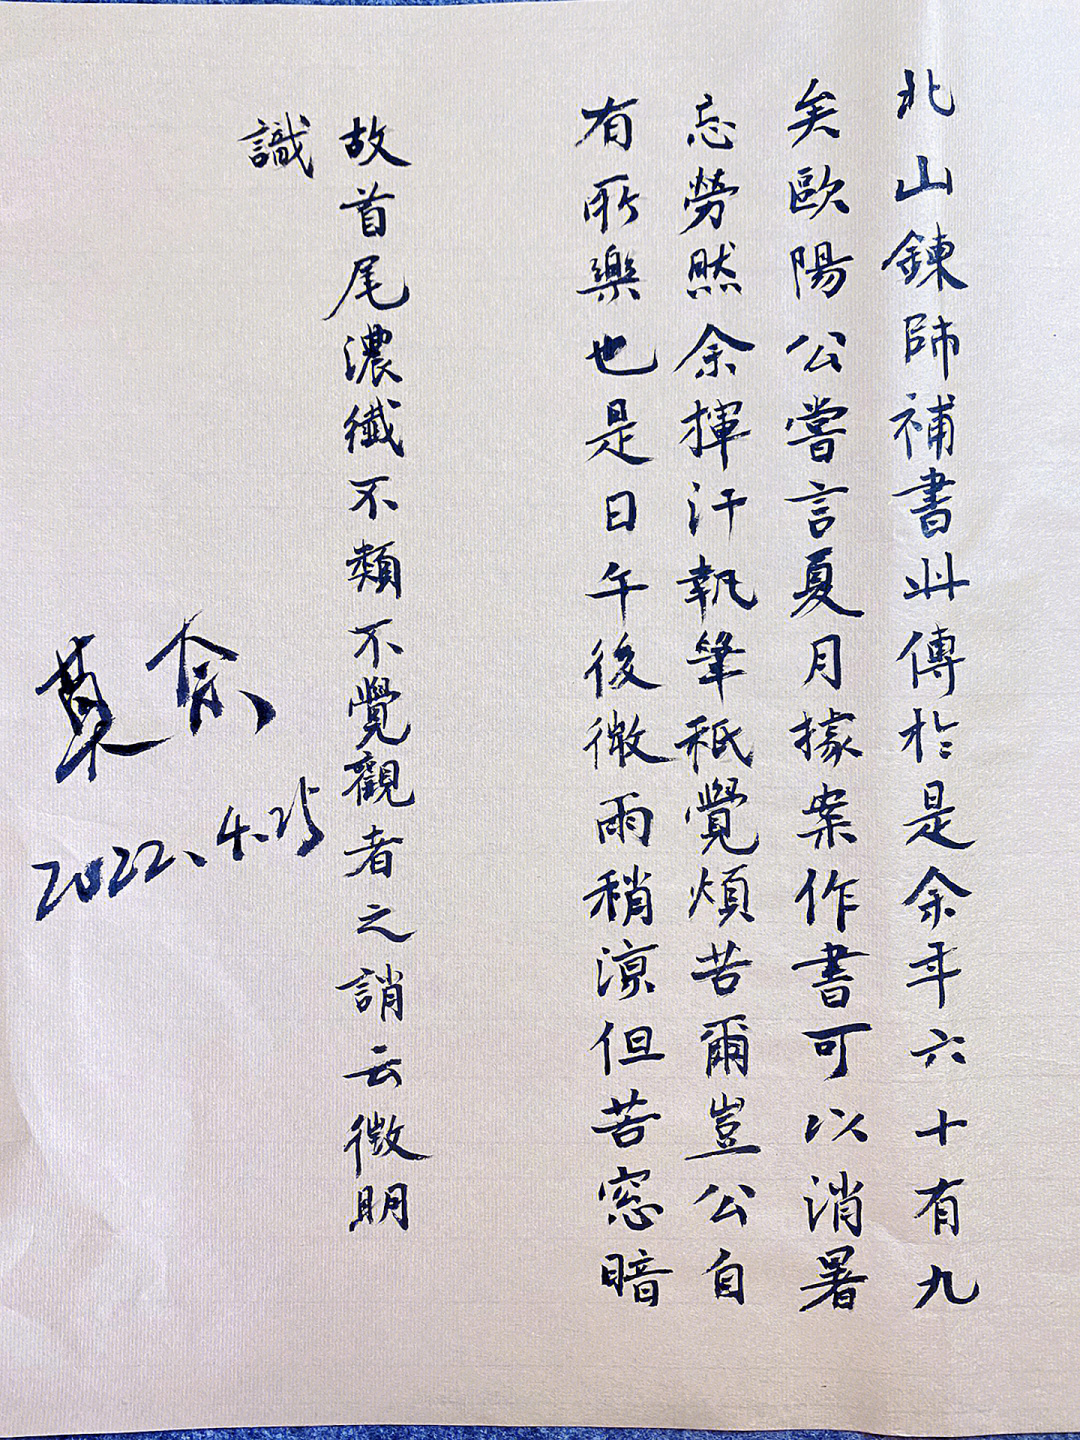 北山鍊師補書此傳於是余年六十有九
矣歐陽公嘗言夏月據案作書可以消暑
忘勞然余揮汗執筆秖覺煩苦爾豈公自
有所樂也是日午後微雨稍涼但苦窓暗
故首尾濃纖不類不覺觀者之誚云微明
識
2022.4.25